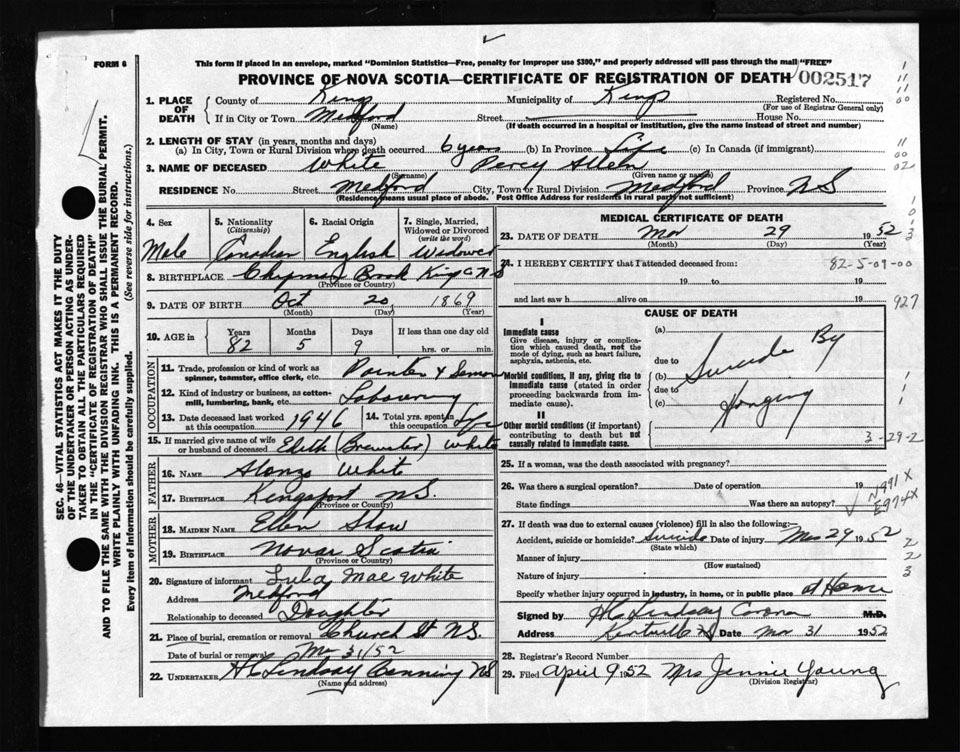 FORM 6
This form if placed in an envelope, marked "Dominion Statistics—Free, penalty for improper use $300," and properly addressed will pass through the mail "FREE"
PROVINCE OF NOVA SCOTIA—CERTIFICATE OF REGISTRATION OF DEATH 002517
1. PLACE OF DEATH County of Kings Municipality of Kings Registered No.
(For use of Registrar General only)
If in City or Town Medford Street House No.
(Name) (If death occurred in a hospital or institution, give the name instead of street and number)
2. LENGTH OF STAY (in years, months and days)
(a) In City, Town or Rural Division where death occurred 6 years (b) In Province Life (c) In Canada (if immigrant)
3. NAME OF DECEASED White Percy Allen
(Surname) (Given name or names)
RESIDENCE No. Street Medford City, Town or Rural Division Medford Province NS
(Residence means usual place of abode. Post Office Address for residents in rural parts not sufficient)
4. Sex Male
5. Nationality (Citizenship) Canadian
6. Racial Origin English
7. Single, Married, Widowed or Divorced (write the word) Widower
8. BIRTHPLACE Brook Kings Co NS
(Province or Country)
9. DATE OF BIRTH Oct 20 1869
(Month) (Day) (Year)
10. AGE in Years 82 Months 5 Days 9 If less than one day old hrs. or min.
OCCUPATION
11. Trade, profession or kind of work as spinner, teamster, office clerk, etc. Painter &
12. Kind of industry or business, as cotton-mill, lumbering, bank, etc. Labouring
13. Date deceased last worked at this occupation 1946
14. Total yrs. spent in this occupation Life
15. If married give name of wife or husband of deceased Edith (Brewster) White
FATHER
16. NAME Alonzo White
17. BIRTHPLACE Kingsport NS.
(Province or Country)
MOTHER
18. MAIDEN NAME Ellen Shaw
19. BIRTHPLACE Novar Scotia
(Province or Country)
20. Signature of informant Lula Mae White
Address Medford
Relationship to deceased Daughter
21. Place of burial, cremation or removal Church St NS.
Date of burial or removal Mar 31/52
22. UNDERTAKER H C Lindsay Canning NS
(Name and address)
MEDICAL CERTIFICATE OF DEATH
23. DATE OF DEATH Mar 29 1952
(Month) (Day) (Year)
24. I HEREBY CERTIFY that I attended deceased from: 82-5-09-00
19 to 19
and last saw h alive on 19 927
CAUSE OF DEATH
I
Immediate cause
Give disease, injury or complication which caused death, not the mode of dying, such as heart failure, asphyxia, asthenia, etc.
Morbid conditions, if any, giving rise to immediate cause (stated in order proceeding backwards from immediate cause).
II
Other morbid conditions (if important) contributing to death but not causally related to immediate cause.
(a)
due to
(b)
due to
(c)
Suicide By
Hanging
3-29-2
25. If a woman, was the death associated with pregnancy?
26. Was there a surgical operation? Date of operation 19
State findings Was there an autopsy?
N991X
E974X
27. If death was due to external causes (violence) fill in also the following:—
Accident, suicide or homicide? Suicide Date of injury Mar 29 1952
(State which)
Manner of injury
(How sustained)
Nature of injury
Specify whether injury occurred in industry, in home, or in public place at Home
Signed by H C Lindsay Corona M.D.
Address Kentville NS Date Mar 31 1952
28. Registrar's Record Number
29. Filed April 9 1952 Mrs Jennie Young
(Division Registrar)
SEC. 46—VITAL STATISTICS ACT MAKES IT THE DUTY OF THE UNDERTAKER OR PERSON ACTING AS UNDERTAKER TO OBTAIN ALL THE PARTICULARS REQUIRED IN THE "CERTIFICATE OF REGISTRATION OF DEATH" AND TO FILE THE SAME WITH THE DIVISION REGISTRAR WHO SHALL ISSUE THE BURIAL PERMIT.
WRITE PLAINLY WITH UNFADING INK. THIS IS A PERMANENT RECORD.
Every item of information should be carefully supplied. (See reverse side for instructions.)